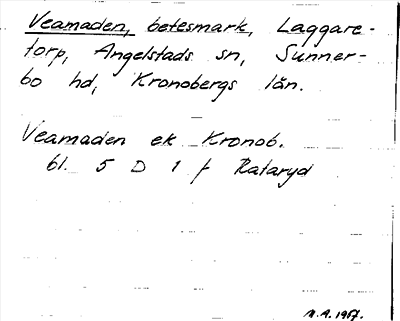 Veamaden, betesmark, Laggare-
torp, Angelstads sn, Sunner-
bo hd, Kronobergs län.
Veamaden ek Kronob.
bl. 5 D 1 f Rataryd
N.A. 1967.